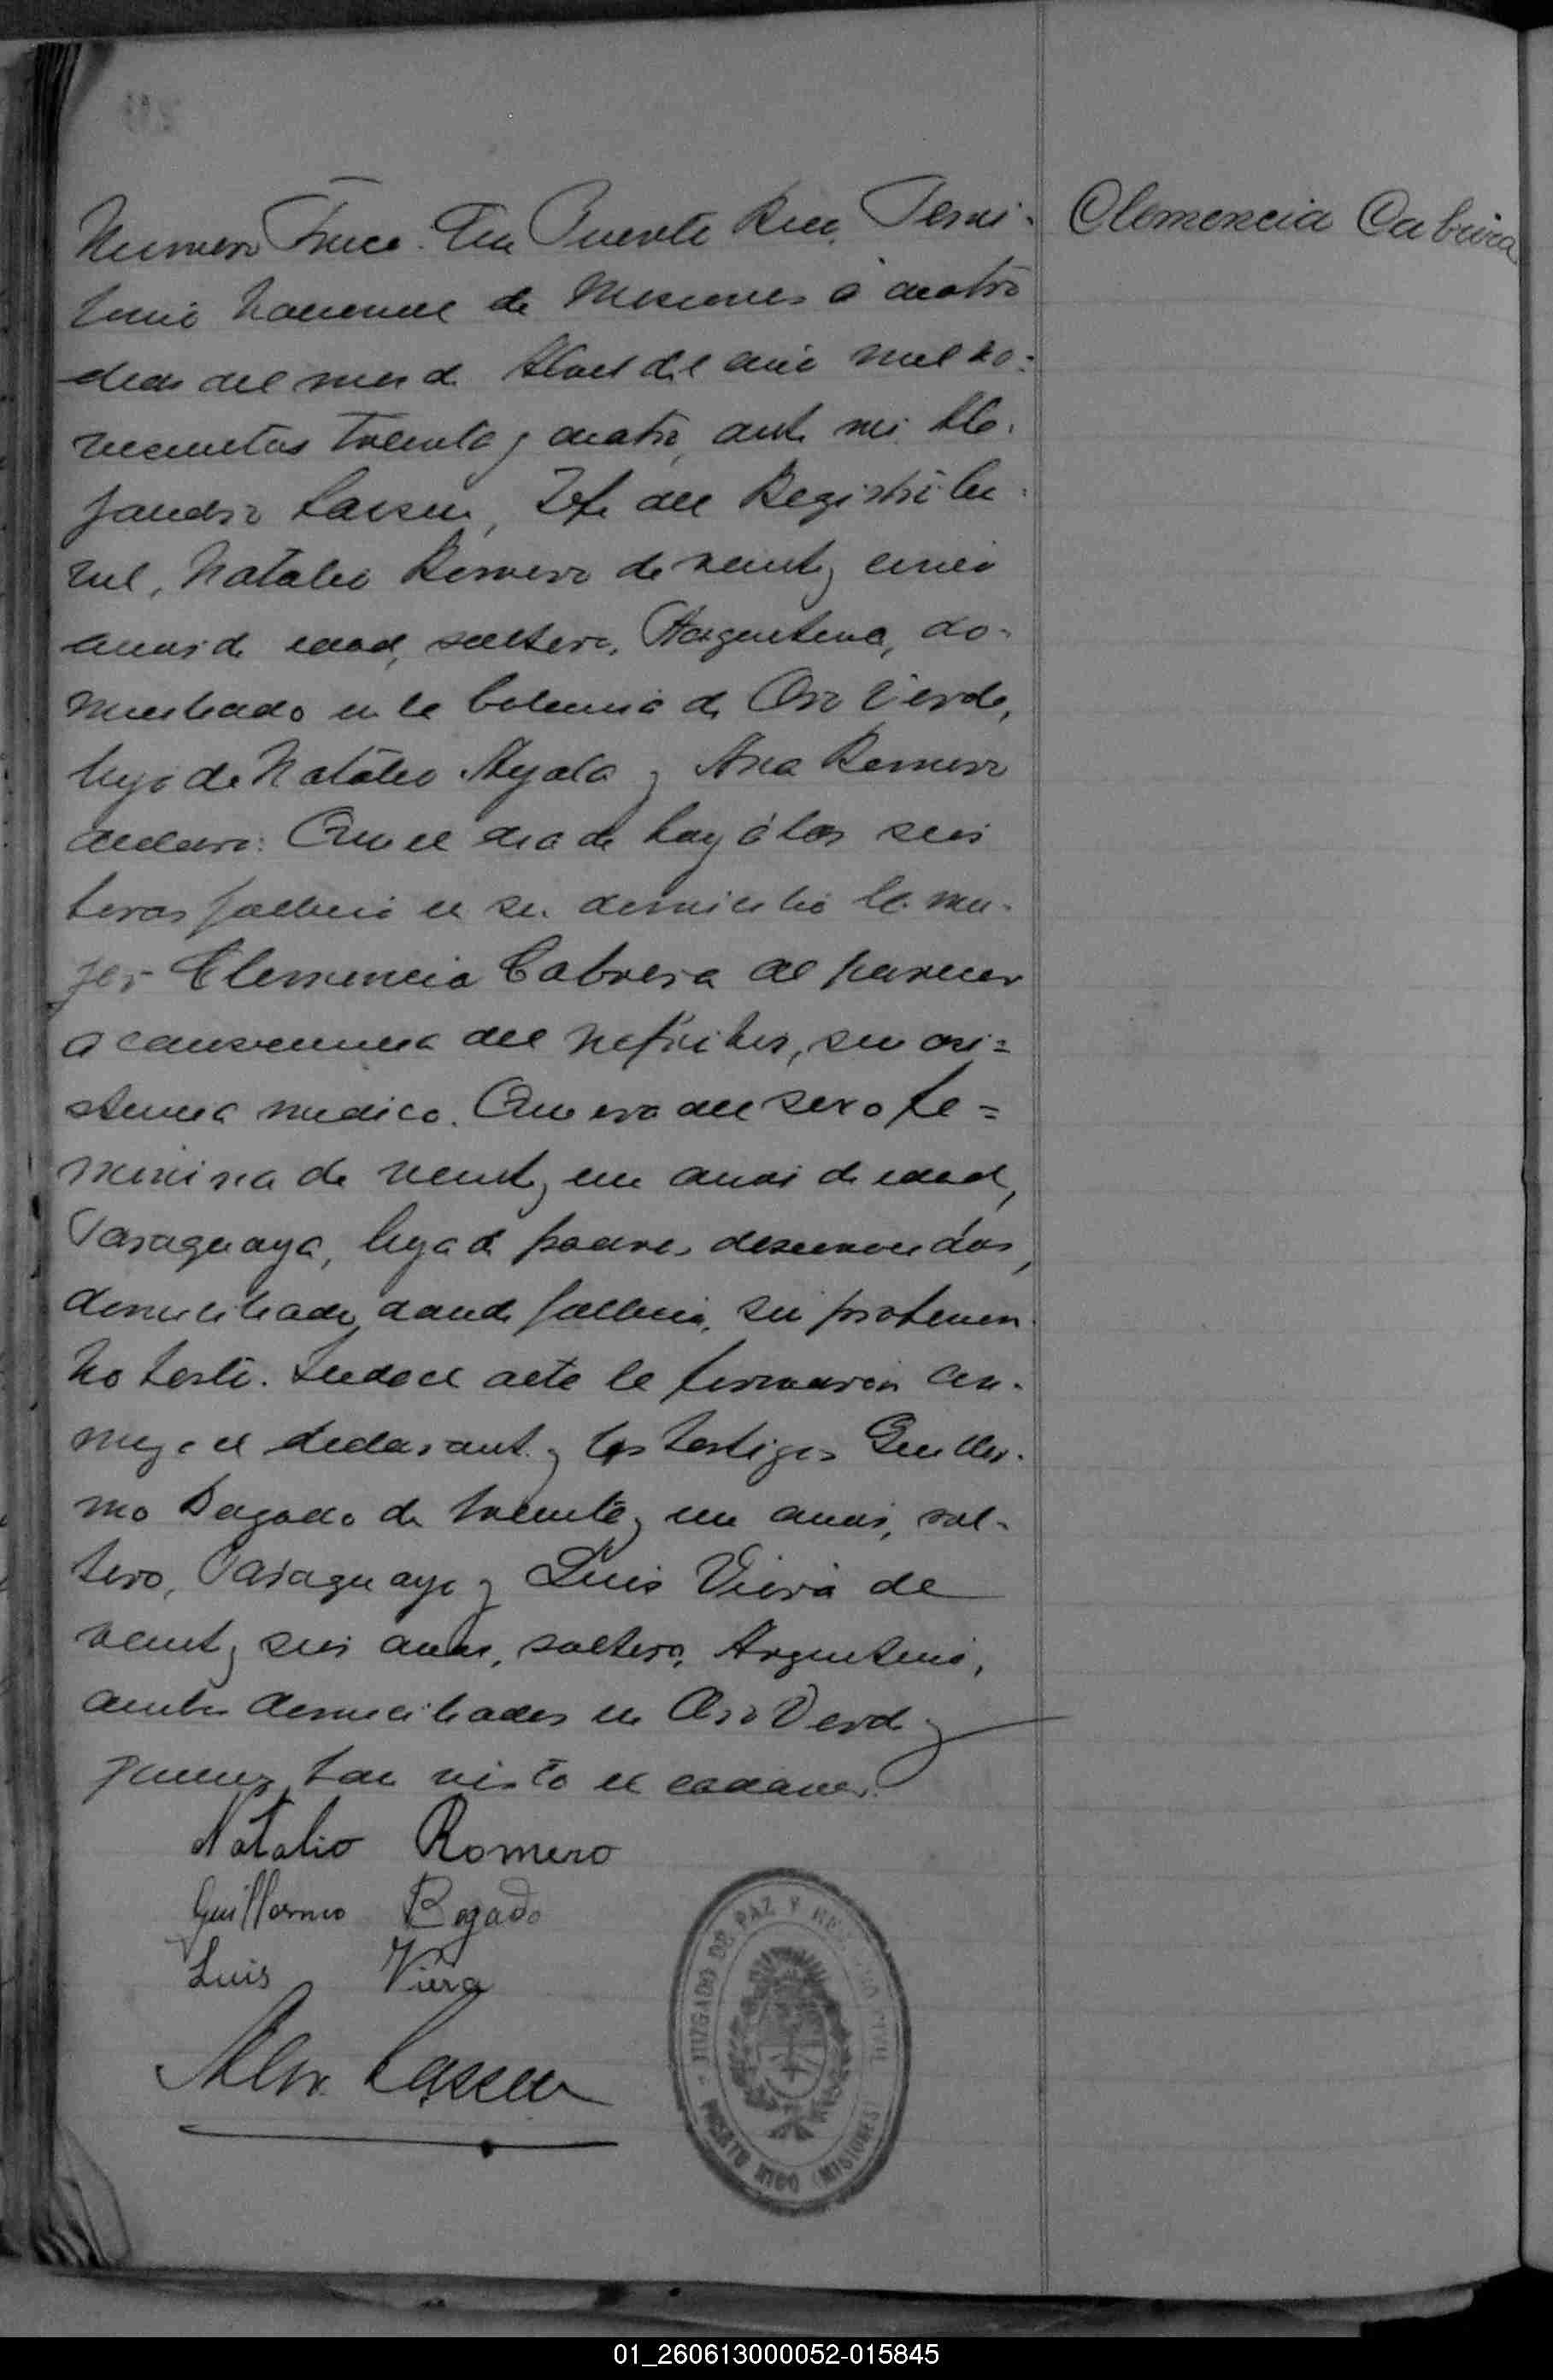 Numero Trece. En Puerto Rico, Terri-
torio Nacional de Misiones á cuatro
dias del mes de Abril del año mil no-
vecientos treinta y cuatro, ante mi Ale-
jandro Lassen, Jefe del Registro Ci-
vil, Natalio Romero de veinte y cinco
anos de edad, soltero, Argentino, do-
miciliado en la Colonia de Oro Verde,
hijo de Natalio Ayala y Ana Romero
declaro: Que el dia de hoy á las seis
horas fallecio en su domicilio la mu-
jer Clemencia Cabrera al parecer
a consecuencia del nefritis, sin asi-
stencia medica. Que era del sexo fe-
menina de veinte y un anos de edad,
Paraguaya, hija de padres desconocidos,
domiciliado donde fallecio, su
No testó. Leida el acta la firmaron con-
migo el declarante y los testigos Guiller-
mo Bogado de treinta y un anos, sol-
tero, Paraguayo y Luis Viera de
veinte y seis anos, soltero, Argentino,
ambos domiciliados en Oro Verde y
quienes han visto el cadaver.
Natalio Romero
Guillermo Bogado
Luis Viera
Alej. Lassen
JUZGADO DE PAZ Y REGISTRO CIVIL
PUERTO RICO (MISIONES)
Clemencia Cabrera
01_260613000052-015845